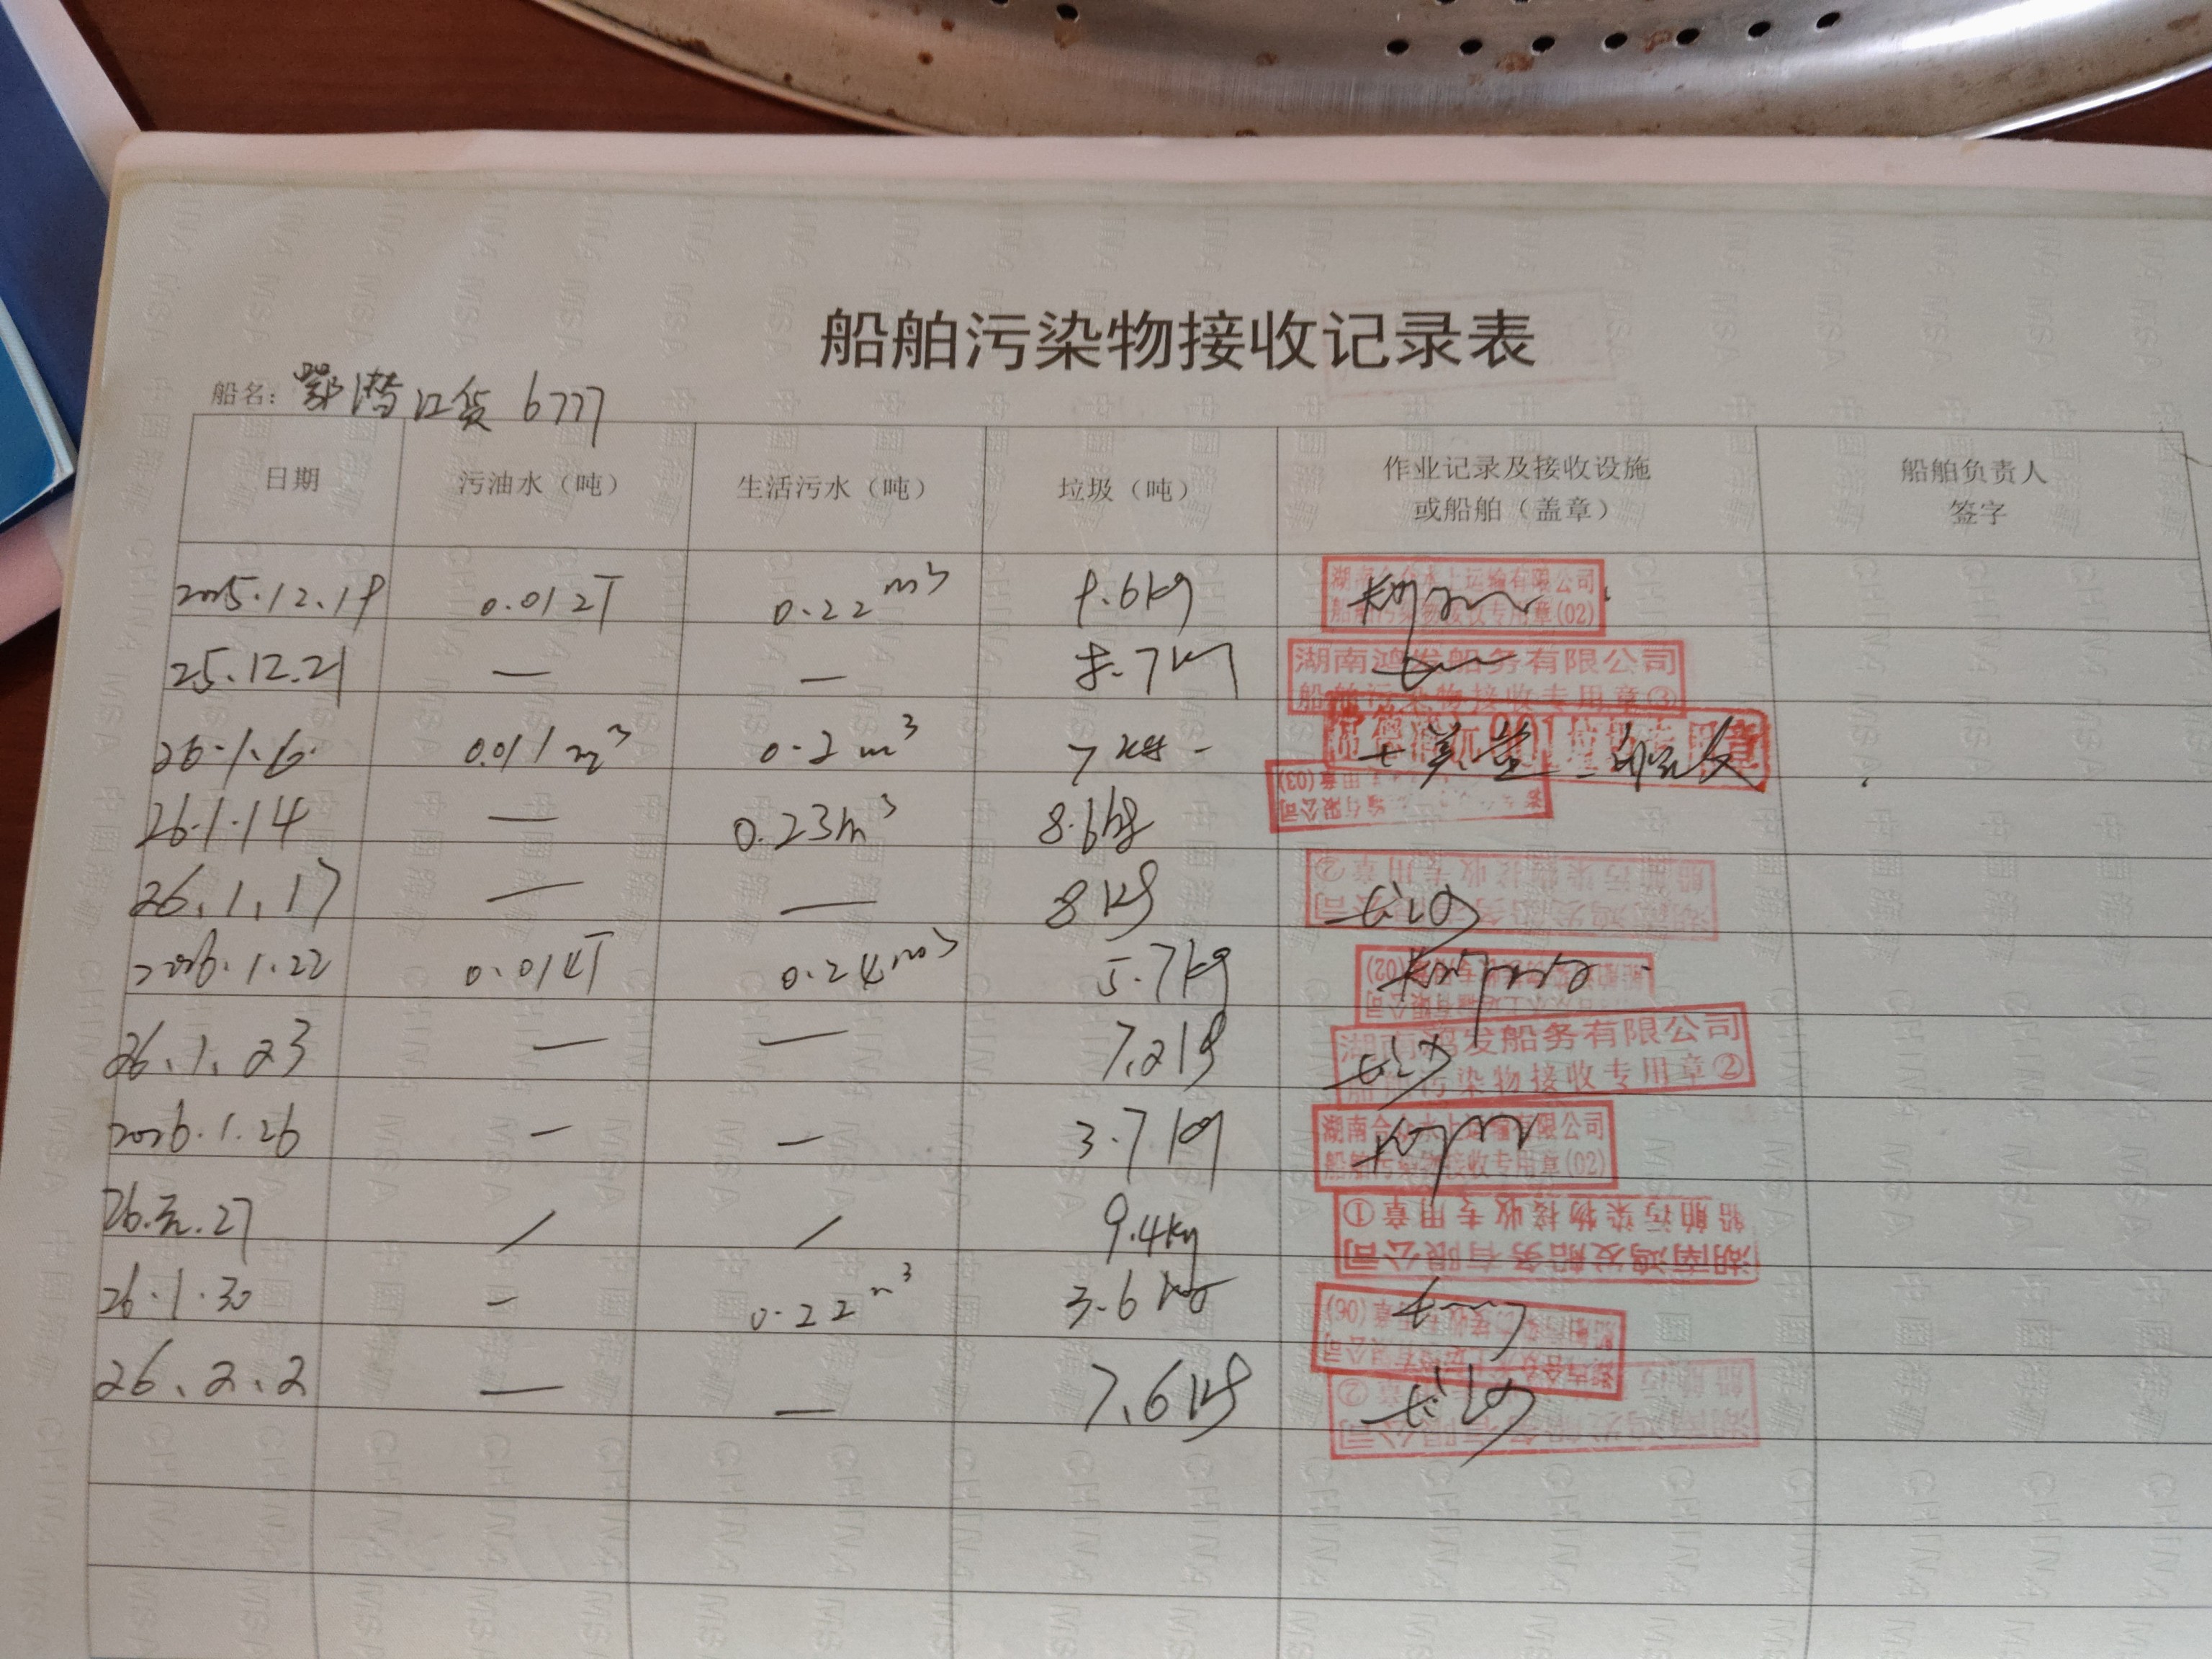 船舶污染物接收记录表
船名: 鄂潜江货 6777
日期 污油水（吨） 生活污水（吨） 垃圾（吨） 作业记录及接收设施或船舶（盖章） 船舶负责人签字
0.012T 0.22 m³
湖南合众水上运输有限公司
船舶污染物接收专用章(02)
25.12.21 — — 8.7kg
湖南鸿发船务有限公司
船舶污染物接收专用章③
26.1.6. 0.011m³ 0.2m³ 7kg
26.1.14 — 0.23m³ 8.6kg
26.1.17 — — 8kg
湖南鸿发船务有限公司
船舶污染物接收专用章②
2026.1.22 0.014T 0.24m³ 5.7kg
26.1.23 — — 7.2kg
湖南鸿发船务有限公司
船舶污染物接收专用章②
2026.1.26 — — 3.7kg
湖南合众水上运输有限公司
船舶污染物接收专用章(02)
26.元.27 / / 9.4kg
湖南鸿发船务有限公司
船舶污染物接收专用章①
26.1.30 - 0.22m³ 3.6kg
26.2.2 — — 7.6kg
湖南鸿发船务有限公司
②